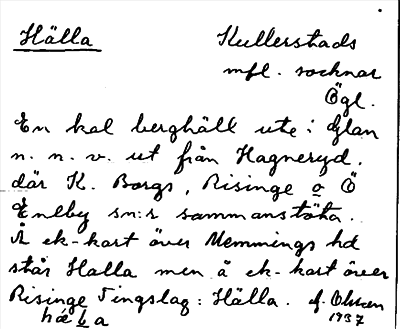 Hälla Kullerstads
mfl. socknar
Ögl.
En kal berghäll ute i Glan
n. n. v. ut från Hagneryd,
där K. Borgs, Risinge o Ö
Eneby sn:r sammanstöta.
Å ek-kart över Memmings hd
står Halla men å ek-kart över
Risinge Tingslag: Hälla.
hälla 1937